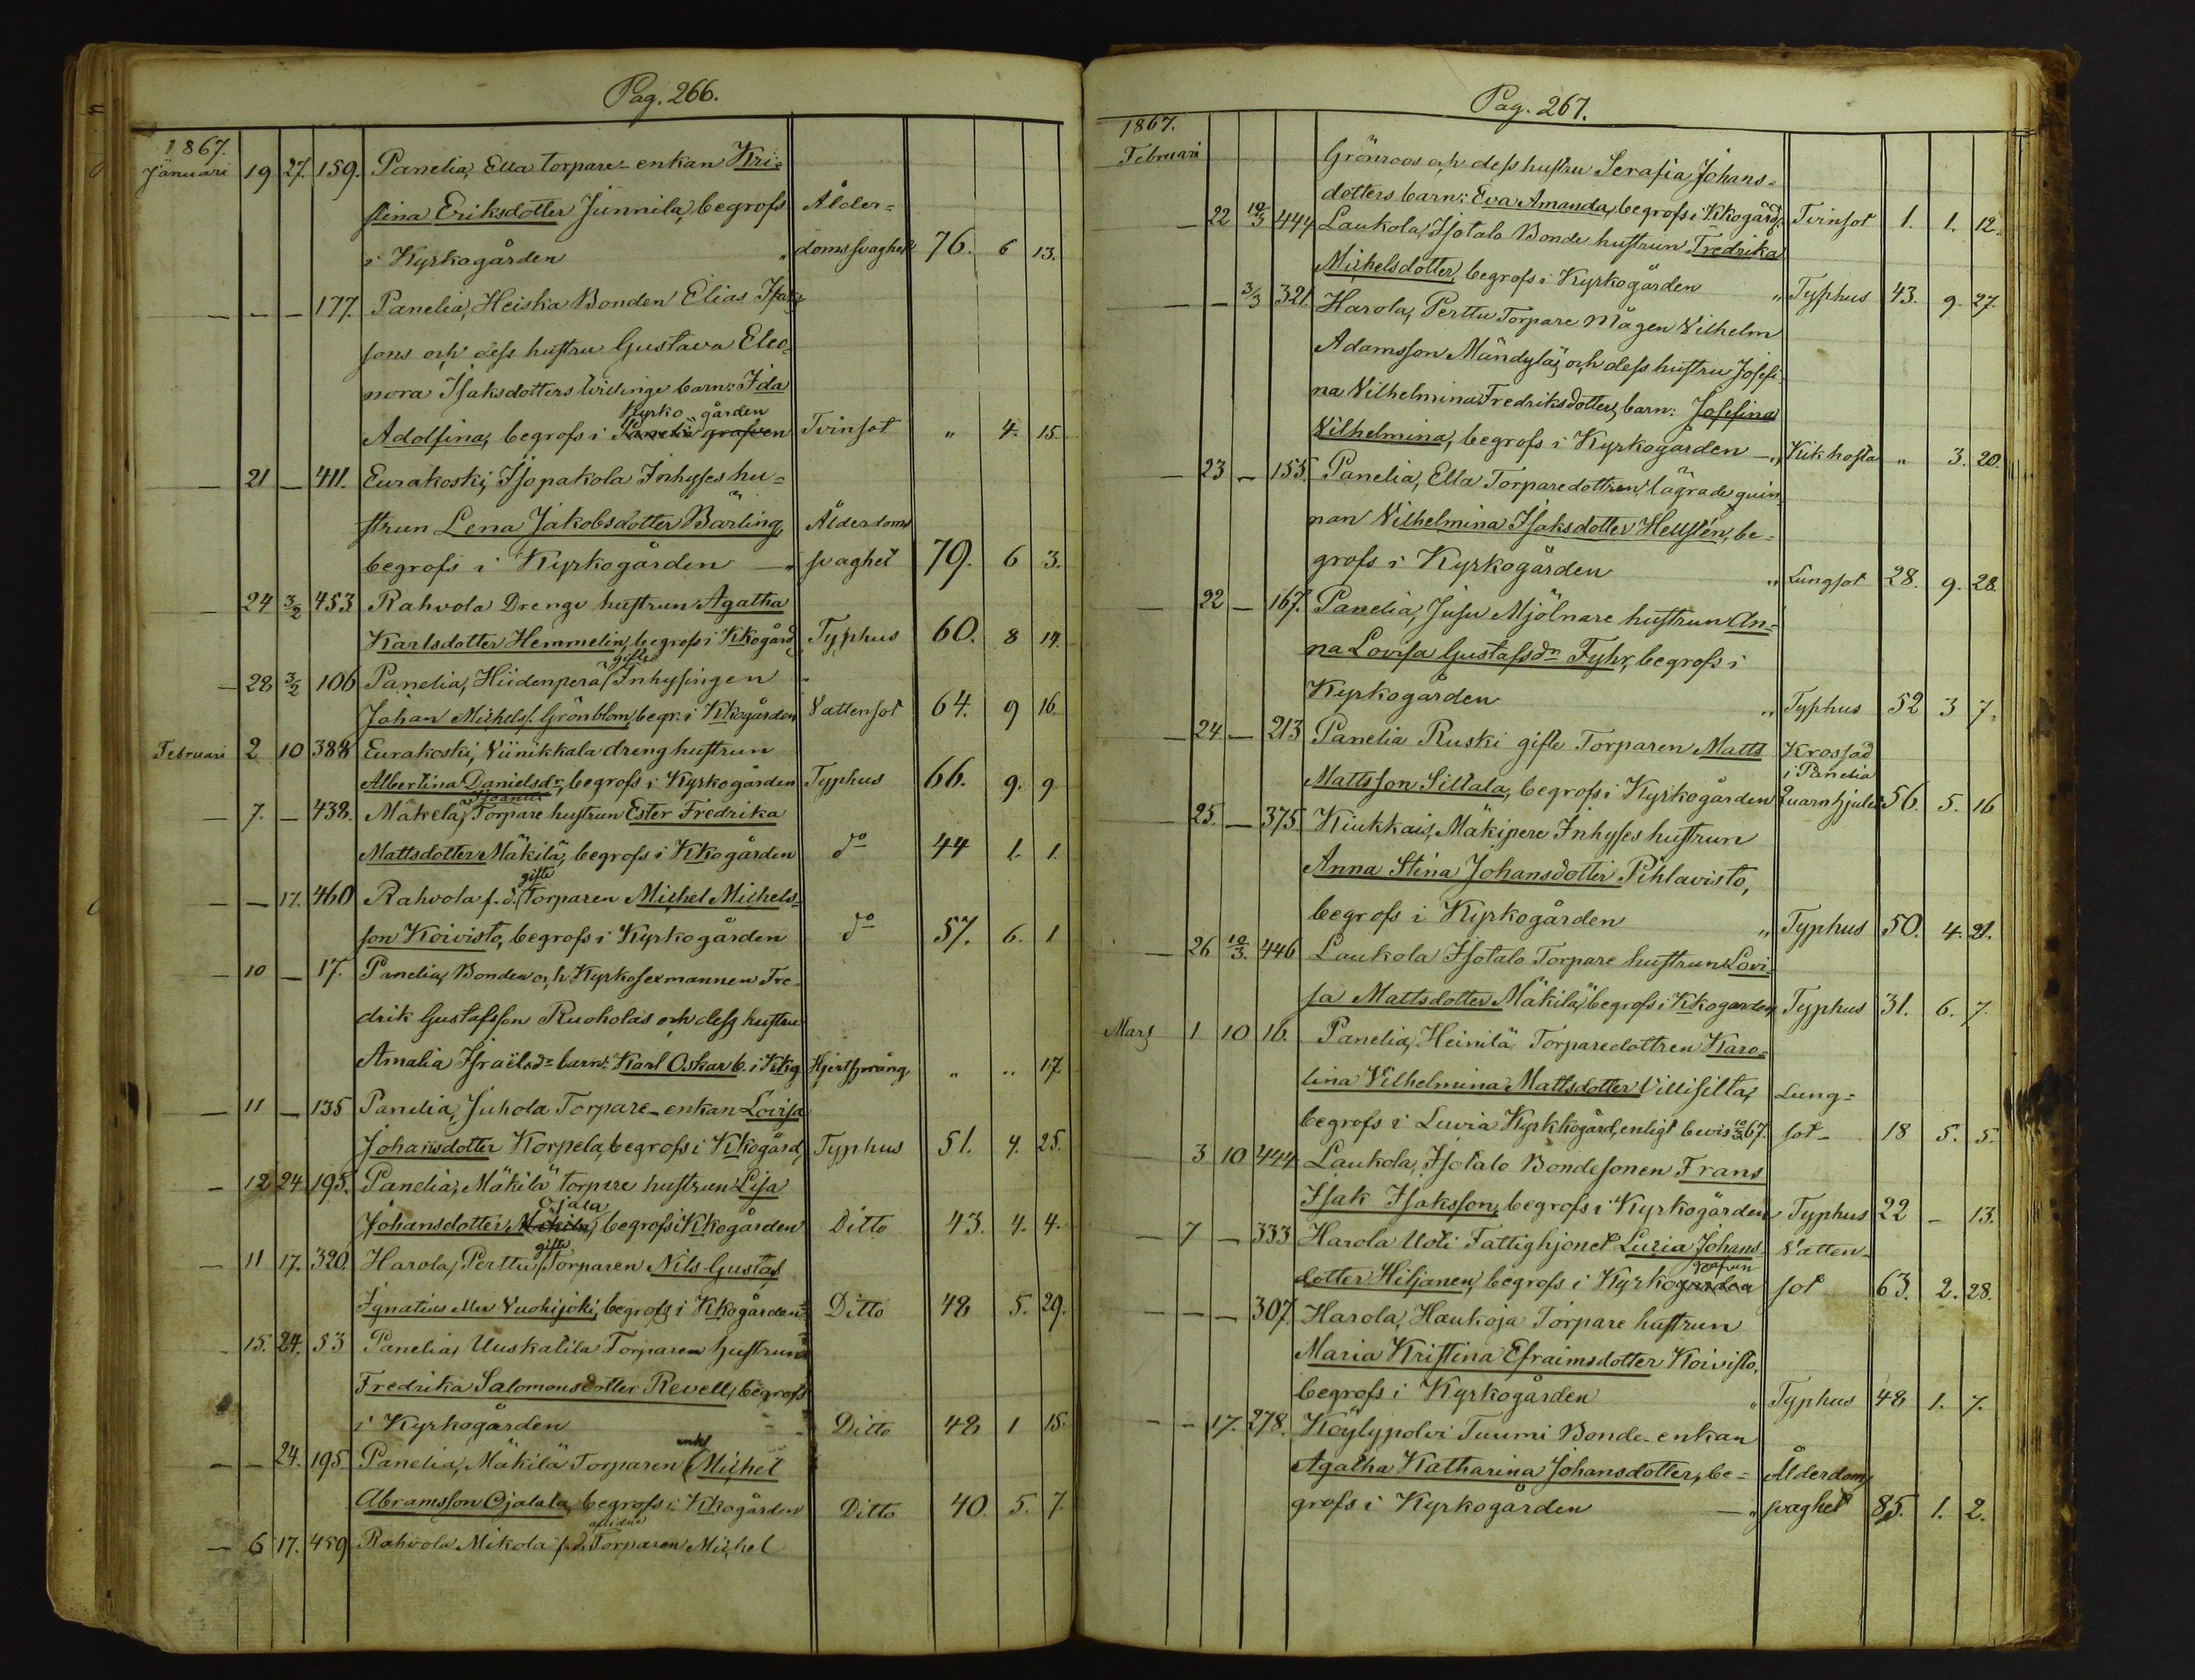 Pag. 266.
1867.
Januari 19 27. 159. Panelia, Ella torpare-enkan Kri-
stina Eriksdotter Junnila, begrofs Ålder-
i Kyrkogården " domssvaghet 76. 6 13.
— — — 177. Panelia, Heiska Bonden Elias Isak-
sons och dess hustru Gustava Eleo-
nora Isaksdotters tvillinge barn: Ida
Kyrko gården
Adolfina, begrofs i Panelia grafven Tvinsot " 4. 15.
— 21 — 411. Eurakoski, Isopakola Inhyses hu-
strun Lena Jakobsdotter Bärling, Ålderdoms
begrofs i Kyrkogården —" svaghet 79. 6 3.
— 24 3/2 453 Rahvola Drenge hustrun Agatha
Karlsdotter Hemmelin, begrofs i Kkogård, Typhus 60. 8 14.
gifte
— 28 3/2 106 Panelia, Hiidenperä Inhysingen
Johan Michelss. Grönblom, begr. i Kkogården Vattensot 64. 9 16.
Februari 2 10 388 Eurakoski, Viinikkala dreng hustrun
Albertina Danielsdr, begrofs i Kyrkogården Typhus 66. 9. 9
— 7. — 438. Mäkelä, Torpare hustrun Ester Fredrika
Mattsdotter Mäkilä, begrofs i Kkogården do 44 1. 1.
gifte
— — 17. 460 Rahvola f.d. Torparen Michel Michels-
son Koivisto, begrofs i Kyrkogården do 57. 6. 1
— 10 — 17. Panelia, Bonden och Kyrkosexmannen Fre-
drik Gustafsson Ruoholas och dess hustru
Amalia Israelsdr barn: Karl Oskar b. i Kkg Hjertsprång " " 17.
— 11 — 135 Panelia, Juhola Torpare-enkan Lovisa
Johansdotter Korpela, begrofs i Kkogård, Typhus 51. 4. 25.
— 12 24 195. Panelia, Mäkilä torpare hustrun Lisa
Ojala
Johansdotter Mäkilä, begrofs i Kkogården Ditto 43. 4. 4.
gifte
— 11 17. 320. Harola, Perttu Torparen Nils Gustaf
Ignatius eller Vuohijoki, begrofs i Kkogården Ditto 48 5. 29.
— 15. 24. 53 Panelia, Uuskalila Torparen hustrun
Fredrika Salomonsdotter Revell, begrofs
i Kyrkogården Ditto 48 1 15.
enkl
— — 24. 195. Panelia, Mäkilä Torparen Michel
Abramsson Ojalala, begrofs i Kkogården Ditto 40. 5. 7
— 6 17. 459 Rahvola Mikola f.d. Torparen Michel
Pag. 267.
1867.
Februari Grönroos och dess hustru Serafia Johans-
dotters barn: Eva Amanda, begrofs i Kkogård, Tvinsot 1. 1. 12.
— 22 10/3 444 Laukola, Isotalo Bonde hustrun Fredrika
Michelsdotter, begrofs i Kyrkogården " Typhus 43. 9. 27.
— — 3/3 321. Harola, Perttu Torpare Mågen Vilhelm
Adamsson Mändyläs och dess hustru Josefi-
na Vilhelmina Fredriksdotters barn: Josefina
Vilhelmina, begrofs i Kyrkogården —" Kikhosta " 3. 20.
— 23 — 155. Panelia, Ella Torparedottren lägrade quin-
nan Vilhelmina Isaksdotter Hellsten, be-
grofs i Kyrkogården " Lungsot 28. 9. 28.
— 22 — 167. Panelia, Jusu Mjölnare hustrun An-
na Lovisa Gustafsdr Fyhr, begrofs i
Kyrkogården " Typhus 52 3 7.
— 24. — 213 Panelia Ruski gifte Torparen Matts Krossad
i Panelia
Mattsson Sillala, begrofs i Kyrkogården Quarnhjulet 56. 5. 16
— 25. — 375. Kiukkais, Mäkipere Inhyses hustrun
Anna Stina Johansdotter Pihlavisto,
begrofs i Kyrkogården " Typhus 50. 4. 21.
— 26 10/3. 446 Laukola Isotalo Torpare hustrun Lovi-
sa Mattsdotter Mäkilä, begrofs i Kkogården Typhus 31. 6. 7.
Mars 1 10 16. Panelia, Heinilä Torparedottren Karo-
lina Vilhelmina Mattsdotter Villisilta, Lung-
begrofs i Luvia Kyrkkogård, enligt bevis 10/3 67. sot 18 5. 5.
— 3 10 444 Laukola, Isotalo Bondesonen Frans
Isak Isaksson, begrofs i Kyrkogården Typhus 22 — 13.
— 7 — 333 Harola Uoti Fattighjonet Luzia Johans- Vatten-
dotter Hiljanen, begrofs i Kyrkogården sot 63. 2. 28.
— — — 307. Harola, Haukoja Torpare hustrun
Maria Kristina Efraimsdotter Koivisto,
begrofs i Kyrkogården " Typhus 48 1. 7.
— — 17. 278. Köylypolvi Tuumi Bonde-enkan
Agatha Katharina Johansdotter, be- Ålderdoms
grofs i Kyrkogården —" svaghet 85. 1. 2.